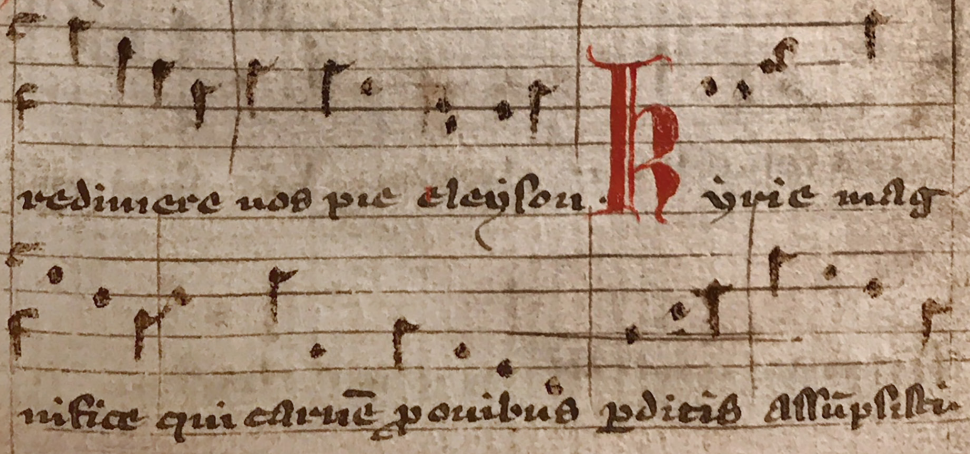 redimere nos pie eleyson. Kyrie mag
nifice qui carnē ꝓ ouibus ꝑditis assūpsisti